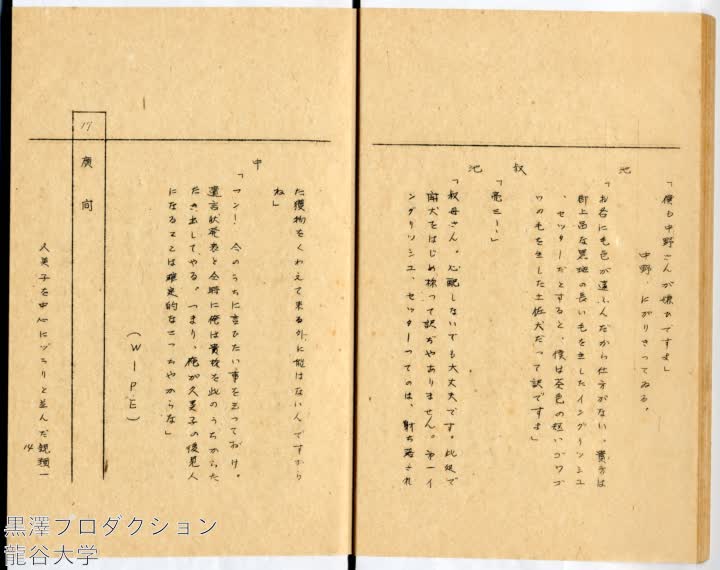 「僕も中野さんが嫌ひですよ」
中野、にがりきってゐる。
池
「お互に毛色が違ふんだから仕方がない。貴方は
郡上品な黒斑の長い毛を生したイングリッシュ
、セッターだとすると、僕は茶色の短いゴワゴ
ワの毛を生した土佐犬だって訳ですよ」
叔
「亮三！」
池
「叔母さん。心配しないでも大丈夫です。此処で
闘犬をはじめ様って訳ぢやありません。第一イ
ングリッシュ、セッターってのは、射ち落され
た獲物をくわえて来る外に能はないんですから
ね」
中
「フン！ 今のうちに言ひたい事を云っておけ。
遺言状発表と全時に俺は貴様を此のうちからた
たき出してやる。つまり、俺が久美子の後見人
になることは確定的なこっちやからな」
（WIPE）
17 広間
久美子を中心にヅラリと並んだ親類一
14
黒澤プロダクション
龍谷大学